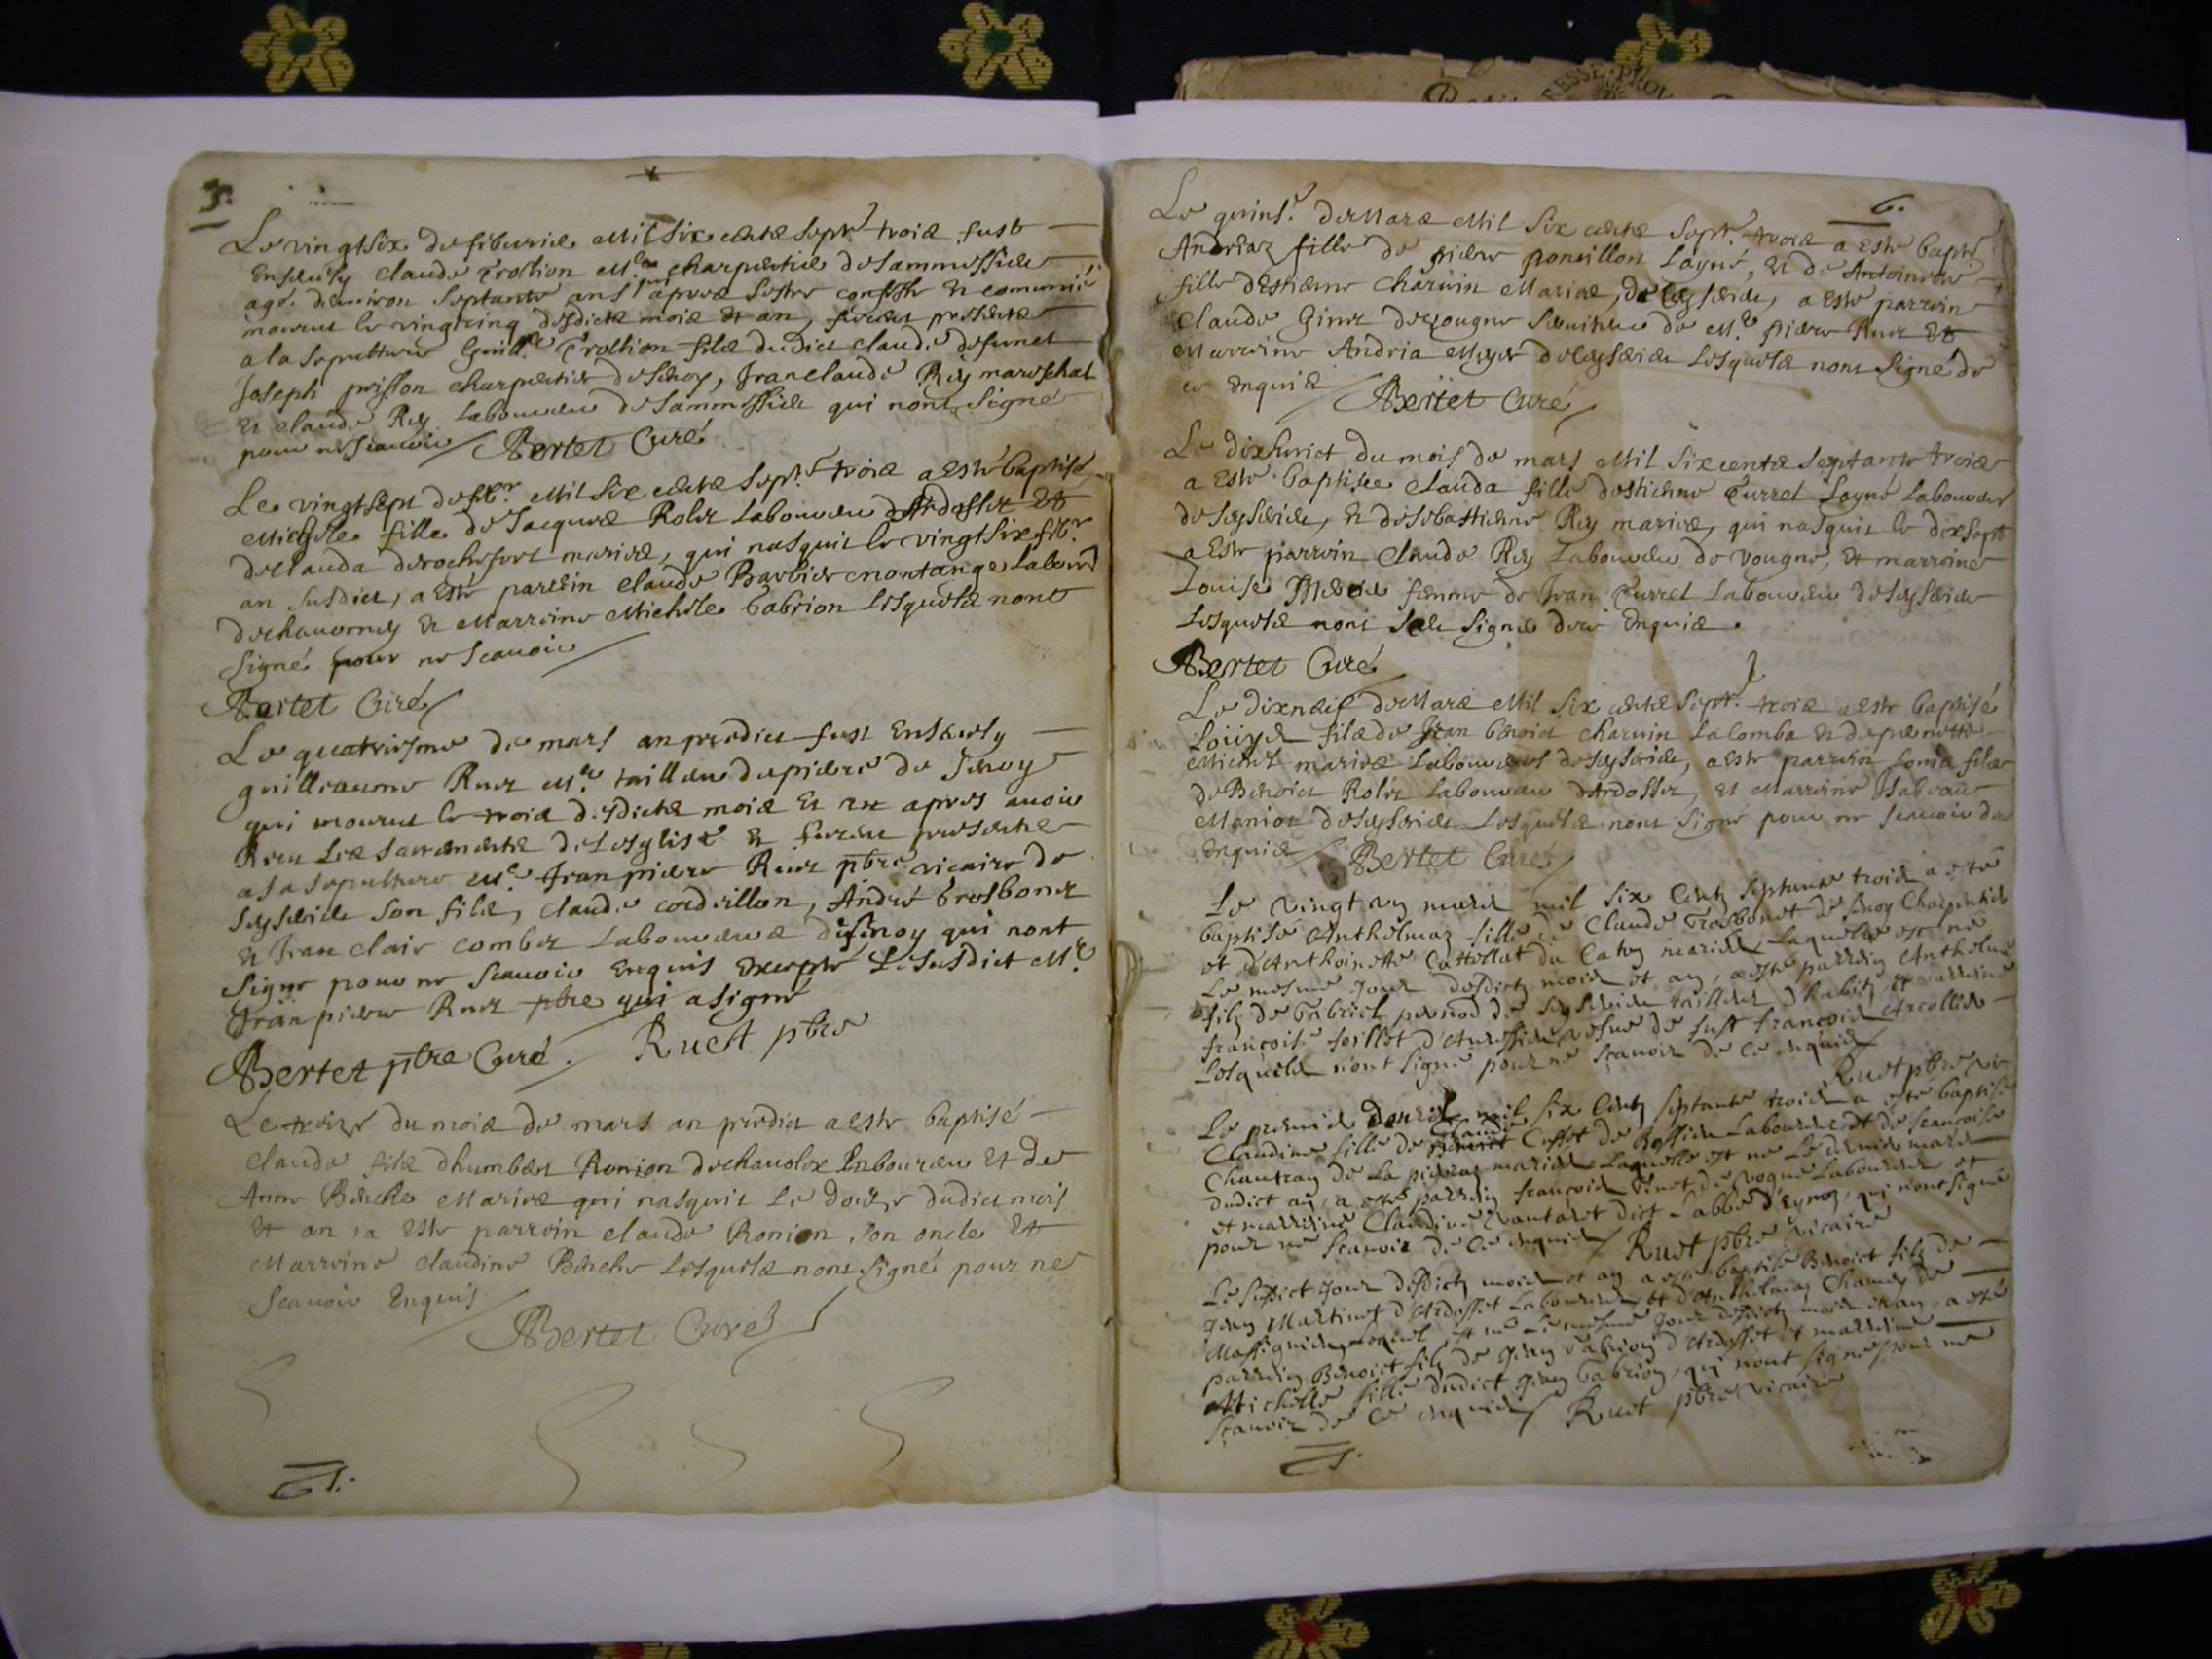 5.
Le vingtsix de feburier Mil Six cents sept.e trois fust
Ensevely Claude Trollion M.e charpentier de Sammessieu
agé denviron septante ans qui apres sestre confessé et comunié
mourut le vingtcinq desdicts mois et an, furent presents
a la sepulture Guill.e Trollion fils dudict claude defunct
Joseph prisson charpentier de Senoy, Jean claude Rey mareschal
et claude Rey laboureur de Sammessieu qui nont signé
pour ne scavoir Bertet Curé
Le vingtsept de feb.r Mil Six cents sept.e trois a esté baptisé
Michele fille de Jacques Rolet laboureur dArdosset et
de Clauda de rochefort mariez, qui nasquit le vingtsix feb.r
an susdict, a esté parrein Claude Barbier montange labour.
de chavorney et Marreine Michele Gabrion lesquels nont
signé pour ne scavoir
Bertet Curé
Le quatriesme de mars an predict fust Ensevely
guilleaume Ruet M.e tailleur de piere de Senoy
qui mourut le trois desdicts mois et an apres avoir
Receu les sacrements de lesglise et furent presents
a sa sepulture M.e Jean piere Ruet pbre vicaire de
Seyserieu son fils, claude cordillon, André Trosbonet
et Jean clair combet laboureurs de Senoy qui nont
signe pour ne scavoir Enquis Excepté le susdict M.e
Jean piere Ruet pbre qui a signé
Bertet pbre Curé. Ruet pbre
Le treize du mois de mars an predict a esté baptisé
Claude fils dhumbert Ronion de chavolex laboureur et de
Anne Berche Mariez qui nasquit le douze dudict mois
et an, a esté parrein claude Ronion son oncle et
Marreine Claudine Berche lesquels nont signé pour ne
scavoir Enquis
Bertet Curé
6.
Le quins.e de Mars Mil Six cents sept.e trois a esté baptisé
Andréaz fille de piere poncillon layné, et de Antoinette
fille dEstienne Charvin Mariez, de Ceyserieu, a esté parrein
Claude Ginet de vougne serviteur de M.e piere Ruet et
Marreine Andria Meyer de Ceyserieu lesquels nont signé de
ce enquis Bertet Curé
Le dixhuict du mois de mars Mil Six cents septante trois
a esté baptisee Clauda fille destienne Turrel layné laboureur
de Seyserieu, et de sebastienne Rey mariez, qui nasquit le dixsept
a esté parrein Claude Rey laboureur de vougne, et marreine
Louise femme de Jean Turrel laboureur de Seyserieu
lesquels nont signé de ce enquis.
Bertet Curé
Le dixneuf de Mars Mil Six cents sept.e trois a esté baptisé
Louys fils de Jean benoict charvin lacomba et de pernette
Michel mariez laboureurs de Seyserieu, a esté parrein Louis fils
de Benoict Rolet laboureur dArdosset, et Marreine Isabeau
Manion de Seyserieu lesquels nont signé pour ne scavoir de ce
enquis Bertet Curé
Le vingt un mars mil six cents septante trois a esté
baptisé Anthelmaz fille de Claude Trosbonet de Senoy Charpentier
et d'Anthoinette Cattellat du Caton mariez, laquelle est né
le mesme jour desdicts mois et an, a esté parrein Anthelme
filz de Gabriel pernod de Seyserieu tailleur d'habitz et marreine
françoise feillet d'Ameyssieu vefve de fust francois Arcollier
lesquels n'ont signé pour ne sçavoir de ce enquis
Ruet pbre vic
Le premier davril mil six cents septante trois a esté baptisé
Claudine fille de Claude Cusset de Bossieu laboureur et de francoise
Chautran de la pierraz mariez, laquelle est né le dernier mars
dudict an, a esté parrein francois vinet de vogne laboureur et
et marreine Claudine vautaret dict labbé d'Eynoz, qui n'ont signé
pour ne sçavoir de ce enquis Ruet pbre vicaire
Le susdict jour desdicts mois et an a esté baptisé Benoict filz de
Jean Martinet d'Ardosset laboureur et d'Anthelmaz Chamey de
Massignieu, lequel est né le mesme jour desdicts mois et an, a esté
parrein Benoict filz de Jean Gabrion d'Ardosset et marreine
Michelle fille dudict Jean Gabrion, qui n'ont signé pour ne
sçavoir de ce enquis Ruet pbre vicaire